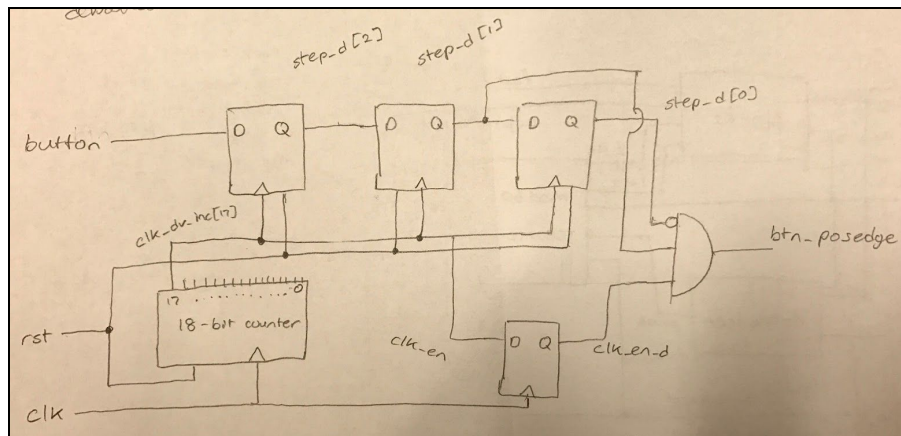 step_d[2]
step_d[1]
step_d[0]
button
D Q
D Q
D Q
clk_dv_inc[17]
btn_posedge
17 ............ 0
18-bit counter
rst
clk_en
D Q
clk_en_d
clk